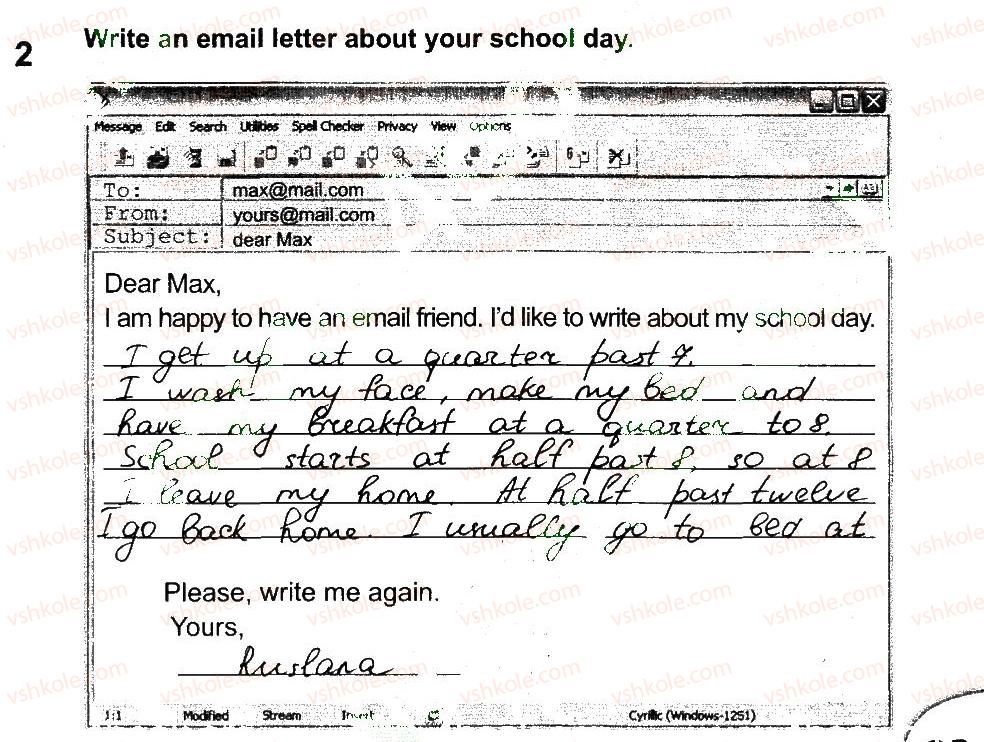 2
Write an email letter about your school day.
Message Edit Search Utilities Spell Checker Privacy View Options
To: max@mail.com
From: yours@mail.com
Subject: dear Max
Dear Max,
I am happy to have an email friend. I'd like to write about my school day.
I get up at a quarter past 7.
I wash my face, make my bed and
have my breakfast at a quarter to 8.
School starts at half past 8, so at 8
I leave my home. At half past twelve
I go back home. I usually go to bed at
Please, write me again.
Yours,
Ruslana
1:1 Modified Stream Insert Cyrillic (Windows-1251)
vshkole.com